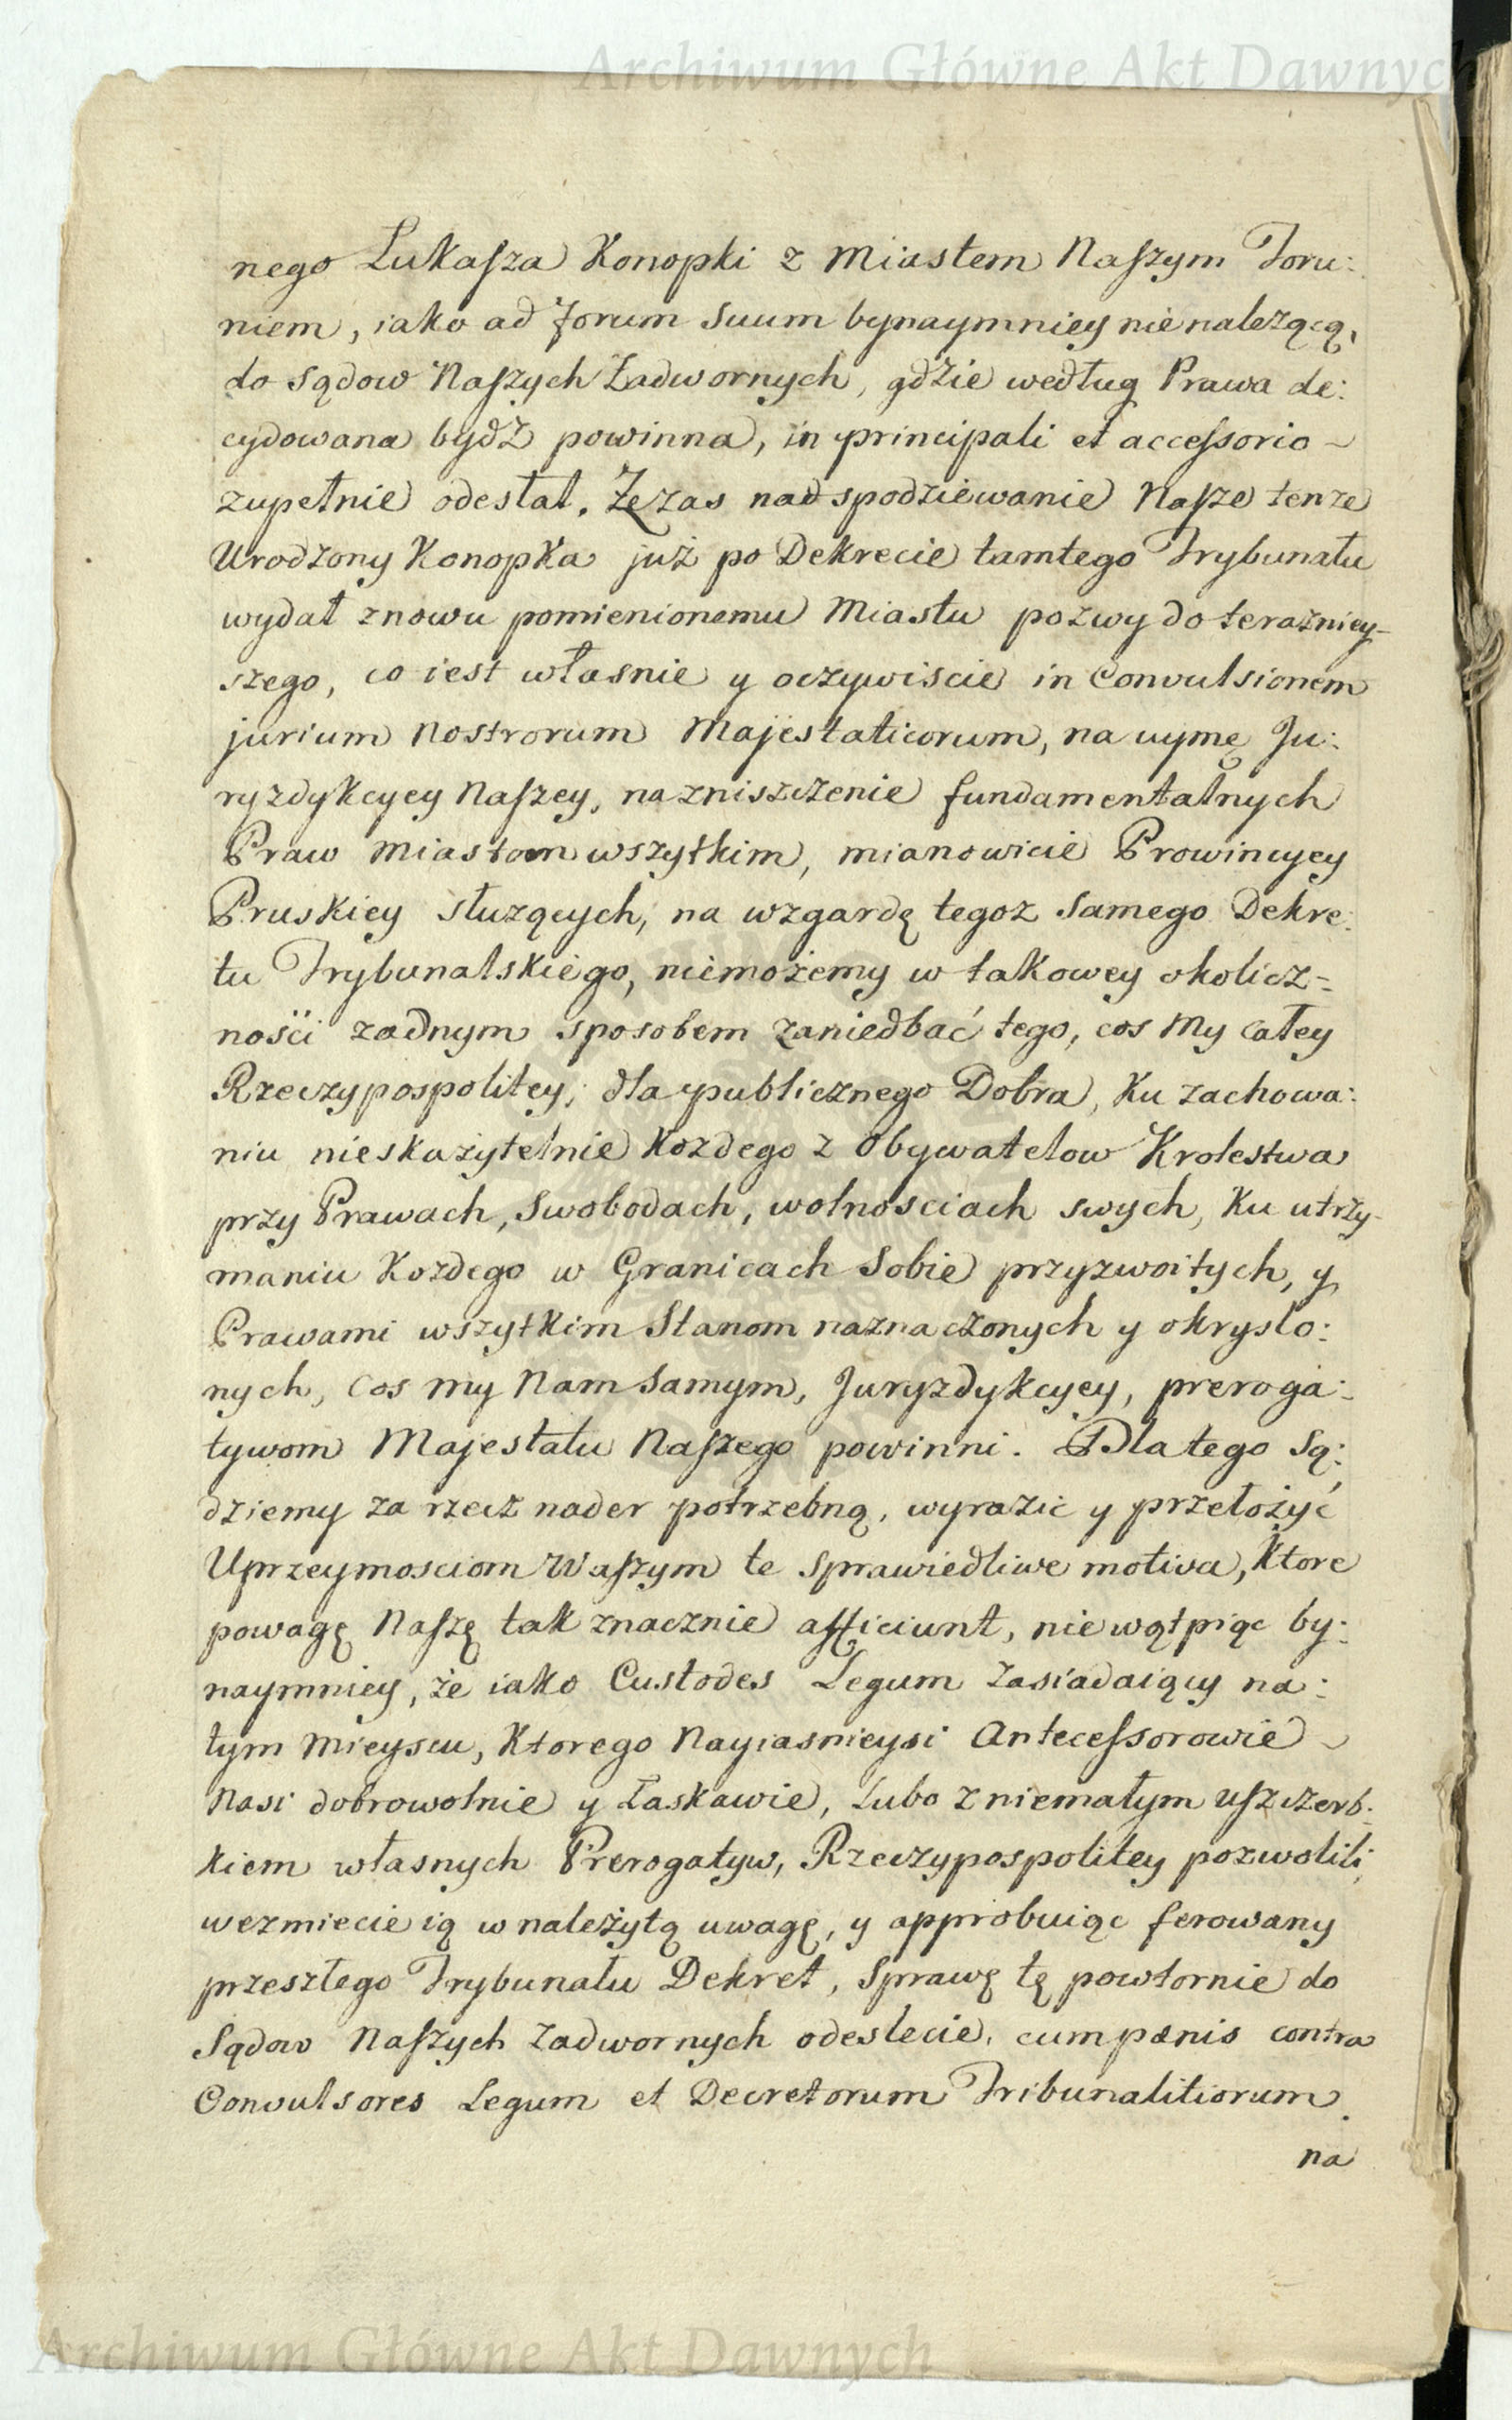 Archiwum Główne Akt Dawnych
nego Lukaſza Konopki z Miastem Naſzym Toru:
niem, iako ad forum suum bynaymniey nienależącą,
do sądow Naſzych Zadwornych, gdzie według Prawa de:
cydowana bydź powinna, in principali et acceſsorio ~
zupełnie odesłał. Że zas nad spodziewanie Naſze tenze
Urodzony Konopka już po Dekrecie tamtego Trybunału
wydał znowu pomienionemu Miastu pozwy do terazniey-
szego, co iest własnie y oczywiscie in Convulsionem
jurium Nostrorum Majestaticorum, na uymę Ju:
ryzdykcyey Naſzey, na zniszczenie fundamentalnych
Praw Miastom wszytkim, mianowicie Prowincyey
Pruskiey słuzących, na wzgardę tegoz samego Dekre:
tu Trybunalskiego, niemożemy w takowey okolicz=
ności zadnym sposobem zaniedbać tego, cos My całey
Rzeczypospolitey, dla publicznego Dobra, Ku zachowa:
niu nieskazytelnie Kozdego z Obywatelow Krolestwa
przy Prawach, Swobodach, wolnosciach swych, Ku utrzy-
maniu Kozdego w Granicach Sobie przyzwoitych, y
Prawami wszytkim Stanom naznaczonych y okryslo:
nych, cos my Nam Samym, Juryzdykcyey, preroga:
tywom Majestatu Naſzego powinni. Dlatego Są:
dziemy za rzecz nader potrzebną, wyrazic y przełożyć
Uprzeymosciom Waſzym te sprawiedliwe motiva, Ktore
powagę Naſzę tak znacznie afficiunt, nie wątpiąc by:
naymniey, że iako Custodes Legum Zasiadaiący na:
tym Mieyscu, Ktorego Nayiasnieysi Anteceſsorowie ~
Nasi dobrowolnie y Łaskawie, Lubo z niemałym uſzczerb:
kiem własnych Prerogatyw, Rzeczypospolitey pozwolili,
wezmiecie ią w należytą uwagę, y approbuiąc ferowany
przeszłego Trybunału Dekret, Sprawę tę powtornie do
Sądow Naſzych Zadwornych odeslecie, cum pænis contra
Convulsores Legum et Decretorum Tribunalitiorum.
na
Archiwum Główne Akt Dawnych